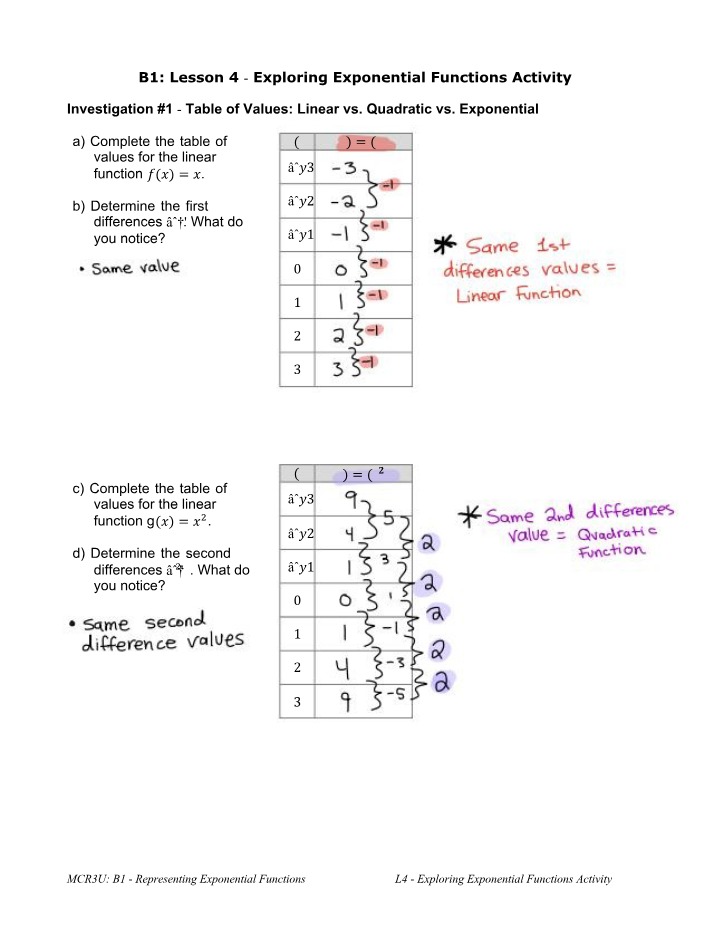 B1: Lesson 4 - Exploring Exponential Functions Activity
Investigation #1 - Table of Values: Linear vs. Quadratic vs. Exponential
a) Complete the table of
values for the linear
function f(x) = x.
b) Determine the first
differences âˆ†. What do
you notice?
• Same value
( ) = (
âˆ’3 -3
-1
âˆ’2 -2
-1
âˆ’1 -1
-1
0 0
-1
1 1
-1
2 2
-1
3 3
* Same 1st
differences values =
Linear Function
c) Complete the table of
values for the linear
function g(x) = x².
d) Determine the second
differences âˆ†². What do
you notice?
• Same second
difference values
( ) = ( ²
âˆ’3 9
5
âˆ’2 4
2
3
âˆ’1 1
2
1
0 0
2
-1
1 1
2
-3
2 4
2
-5
3 9
* Same 2nd differences
value = Quadratic
Function
MCR3U: B1 - Representing Exponential Functions
L4 - Exploring Exponential Functions Activity